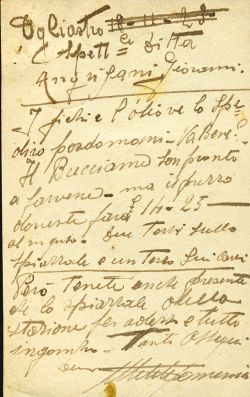 Ogliastro 18-11-23
Spett.le Ditta
Angrisani Giovanni
I fichi e l'olio ve lo spe
dirò posdomani - Va bene.
Il Bucciame son pronto
a farvene - ma il prezzo
dovreste fare £ 14-25
al ingasto. due terzi sullo
spiazzale e un terzo sui carri
Però tenete anche presente
che lo spiazzale della
stazione per adesso e tutto
ingombro. Tanti ossequi